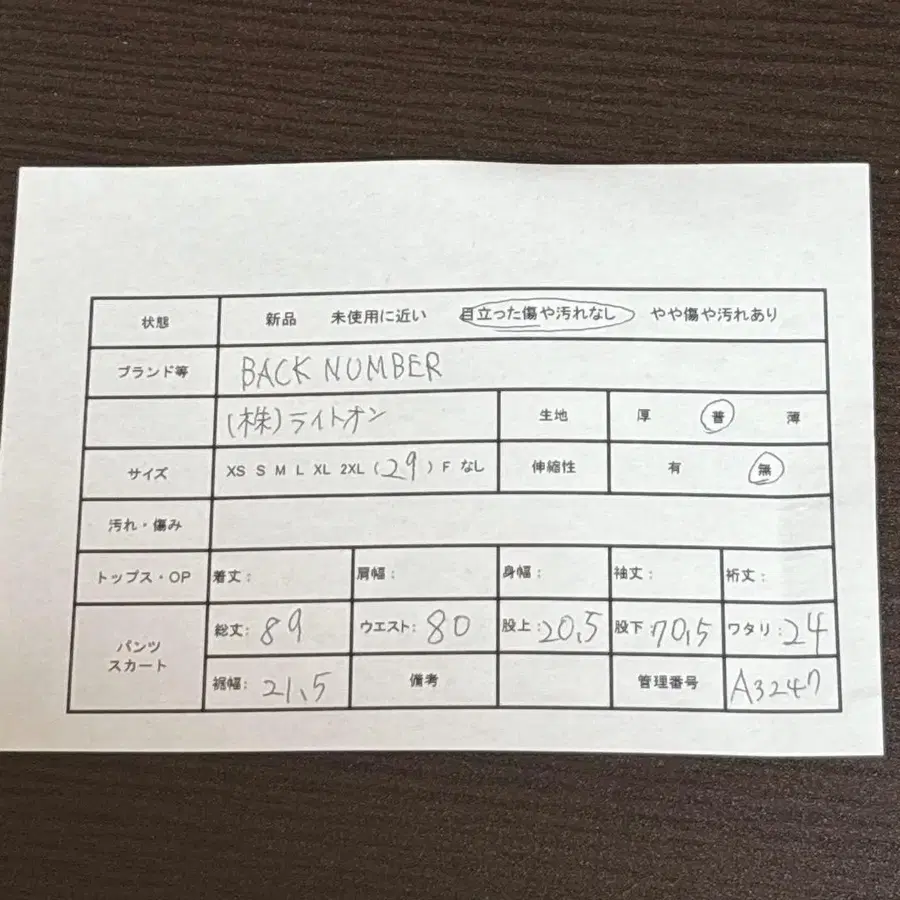 状態 新品 未使用に近い 目立った傷や汚れなし やや傷や汚れあり
ブランド等 BACK NUMBER
(株)ライトオン 生地 厚 普 薄
サイズ XS S M L XL 2XL (29) F なし 伸縮性 有 無
汚れ・傷み
トップス・OP 着丈: 肩幅: 身幅: 袖丈: 裄丈:
パンツ
スカート
総丈: 89 ウエスト: 80 股上: 20.5 股下: 70.5 ワタリ: 24
裾幅: 21.5 備考 管理番号 A3247